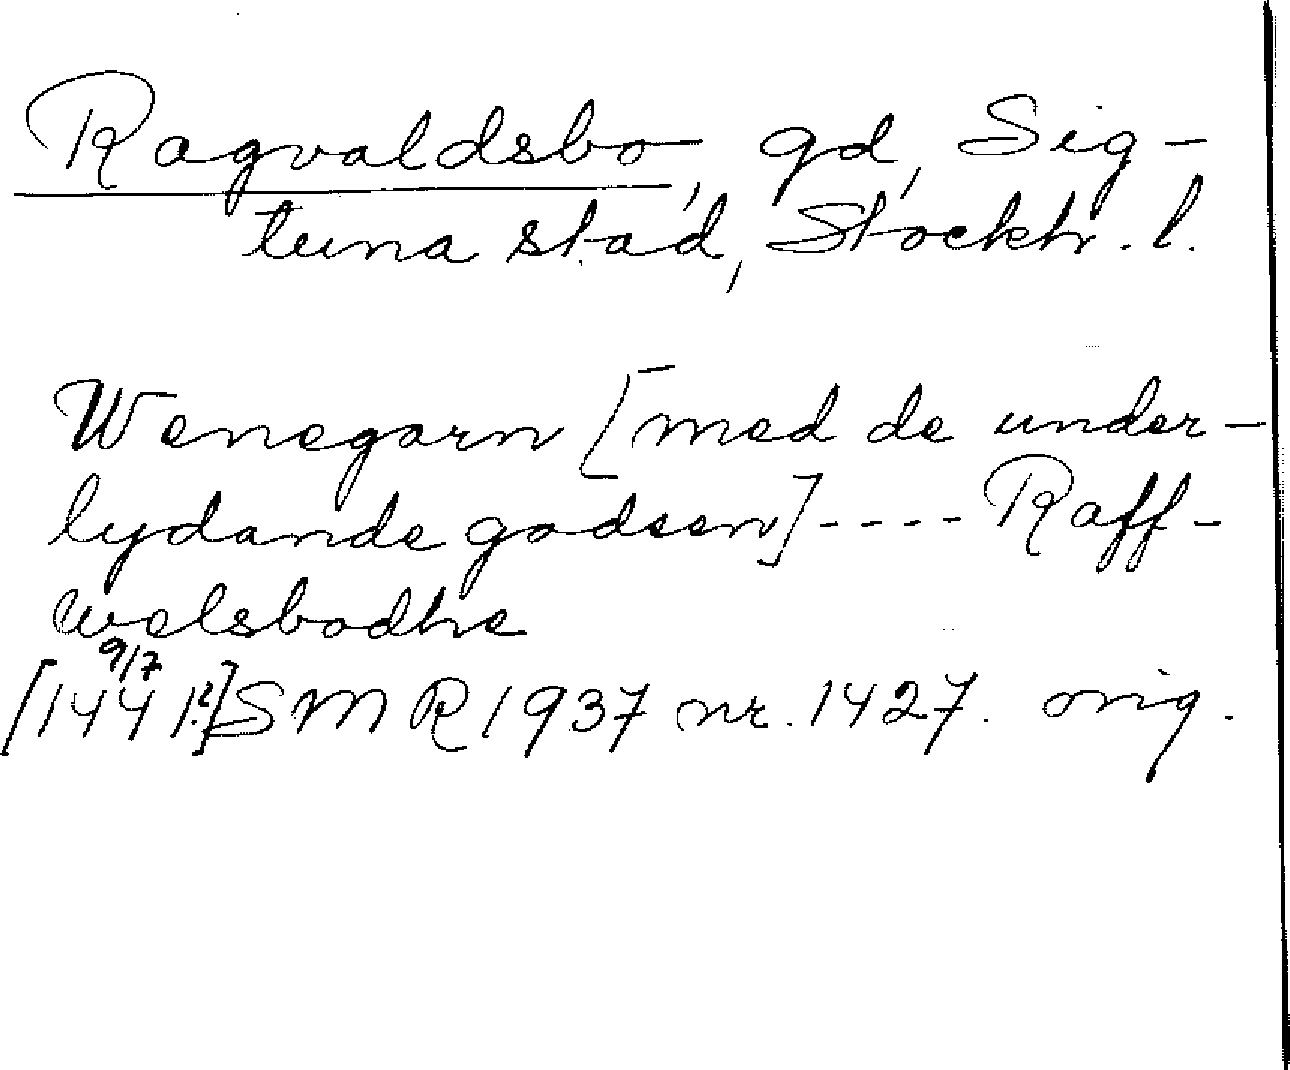 Ragvaldsbo, gd, Sig-
tuna stad, Stockh. l.
Wenegarn [med de under-
lydande godsen] ---- Raff-
welsbodhe
9/7
[1441?] SMR 1937 nr. 1427. orig.